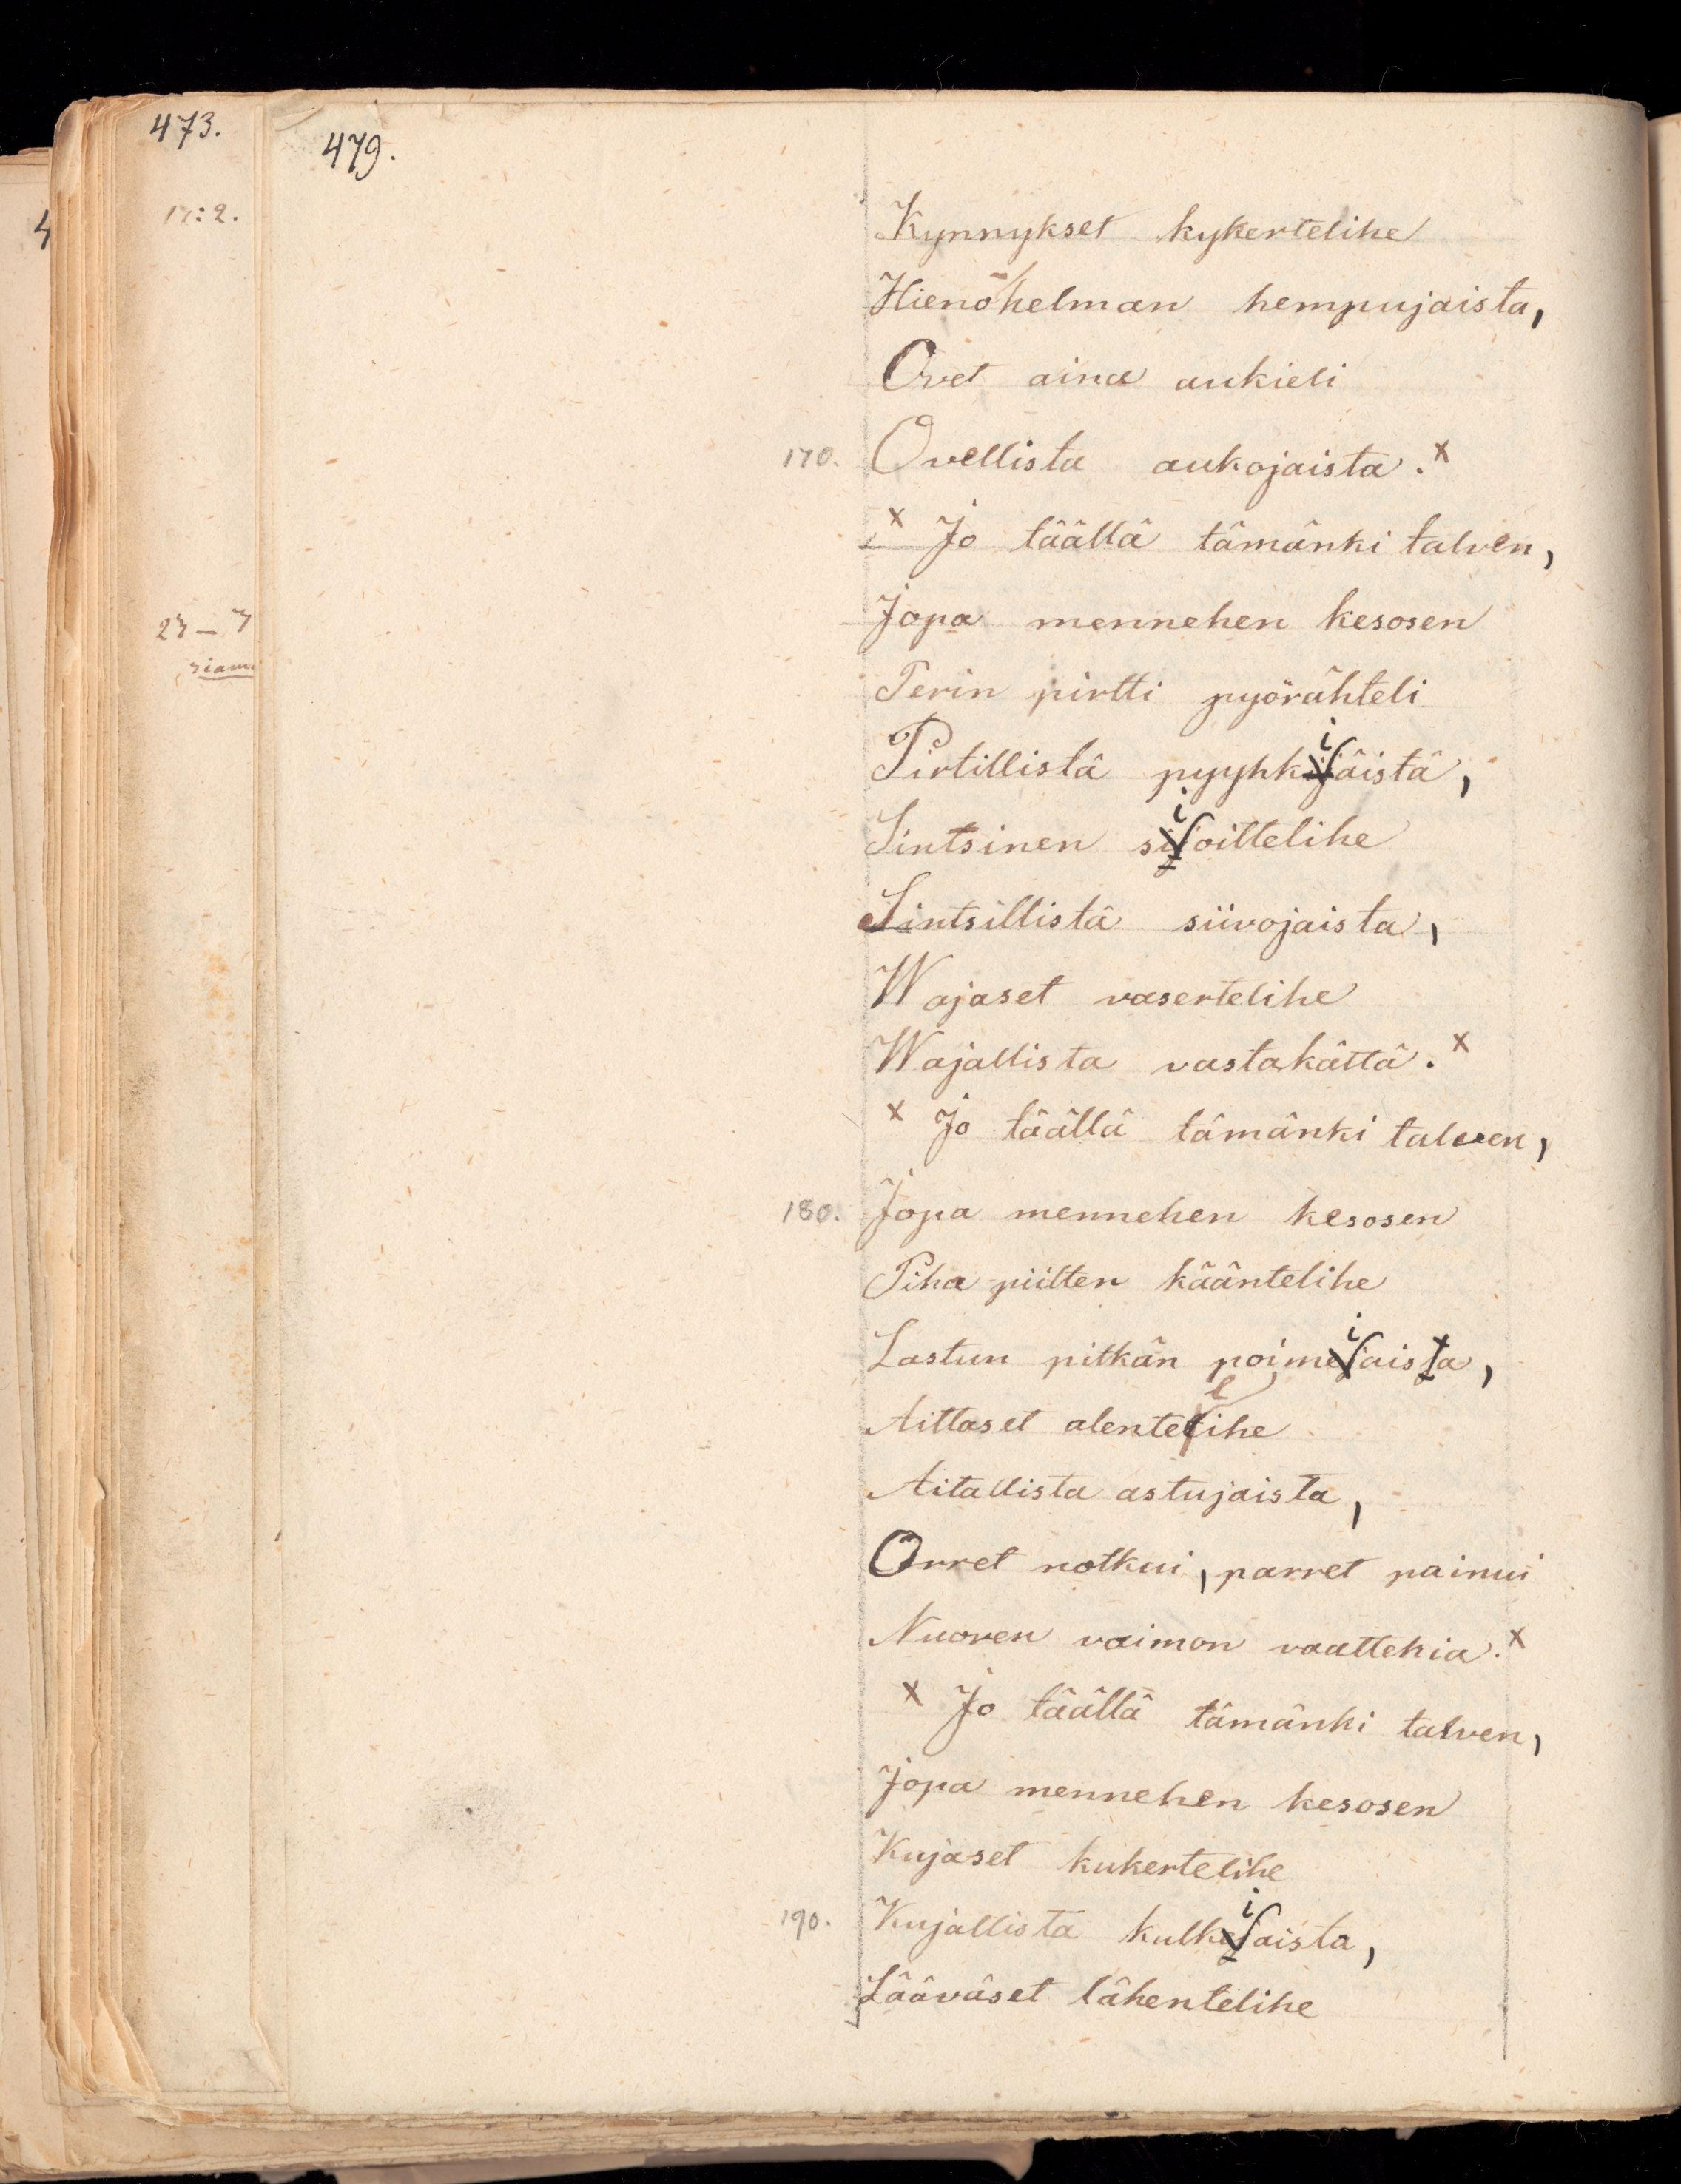 473.
479.
17:2.
Kynnykset kykertelihe
Hienohelman hempujaista,
Ovet aina aukieli
170. Ovellista aukojaista. x
x Jo täällä tämänki talven,
Jopa mennehen kesosen
Perin pirtti pyörähteli
Pirtillistä pyyhkijäistä,
Sintsinen sijoittelihe
Sintsillistä siivojaista,
Wajaset vasertelihe
Wajallista vastakättä. x
x Jo täällä tämänki talven,
180. Jopa mennehen kesosen
Piha piilten kääntelihe
Lastun pitkän poimijaista,
Aittaset alentelihe
Aitallista astujaista,
Orret notkui, parret painui
Nuoren vaimon vaattehia. x
x Jo täällä tämänki talven,
Jopa mennehen kesosen
Kujaset kukertelihe
190. Kujallista kulkijaista,
Lääväset lähentelihe